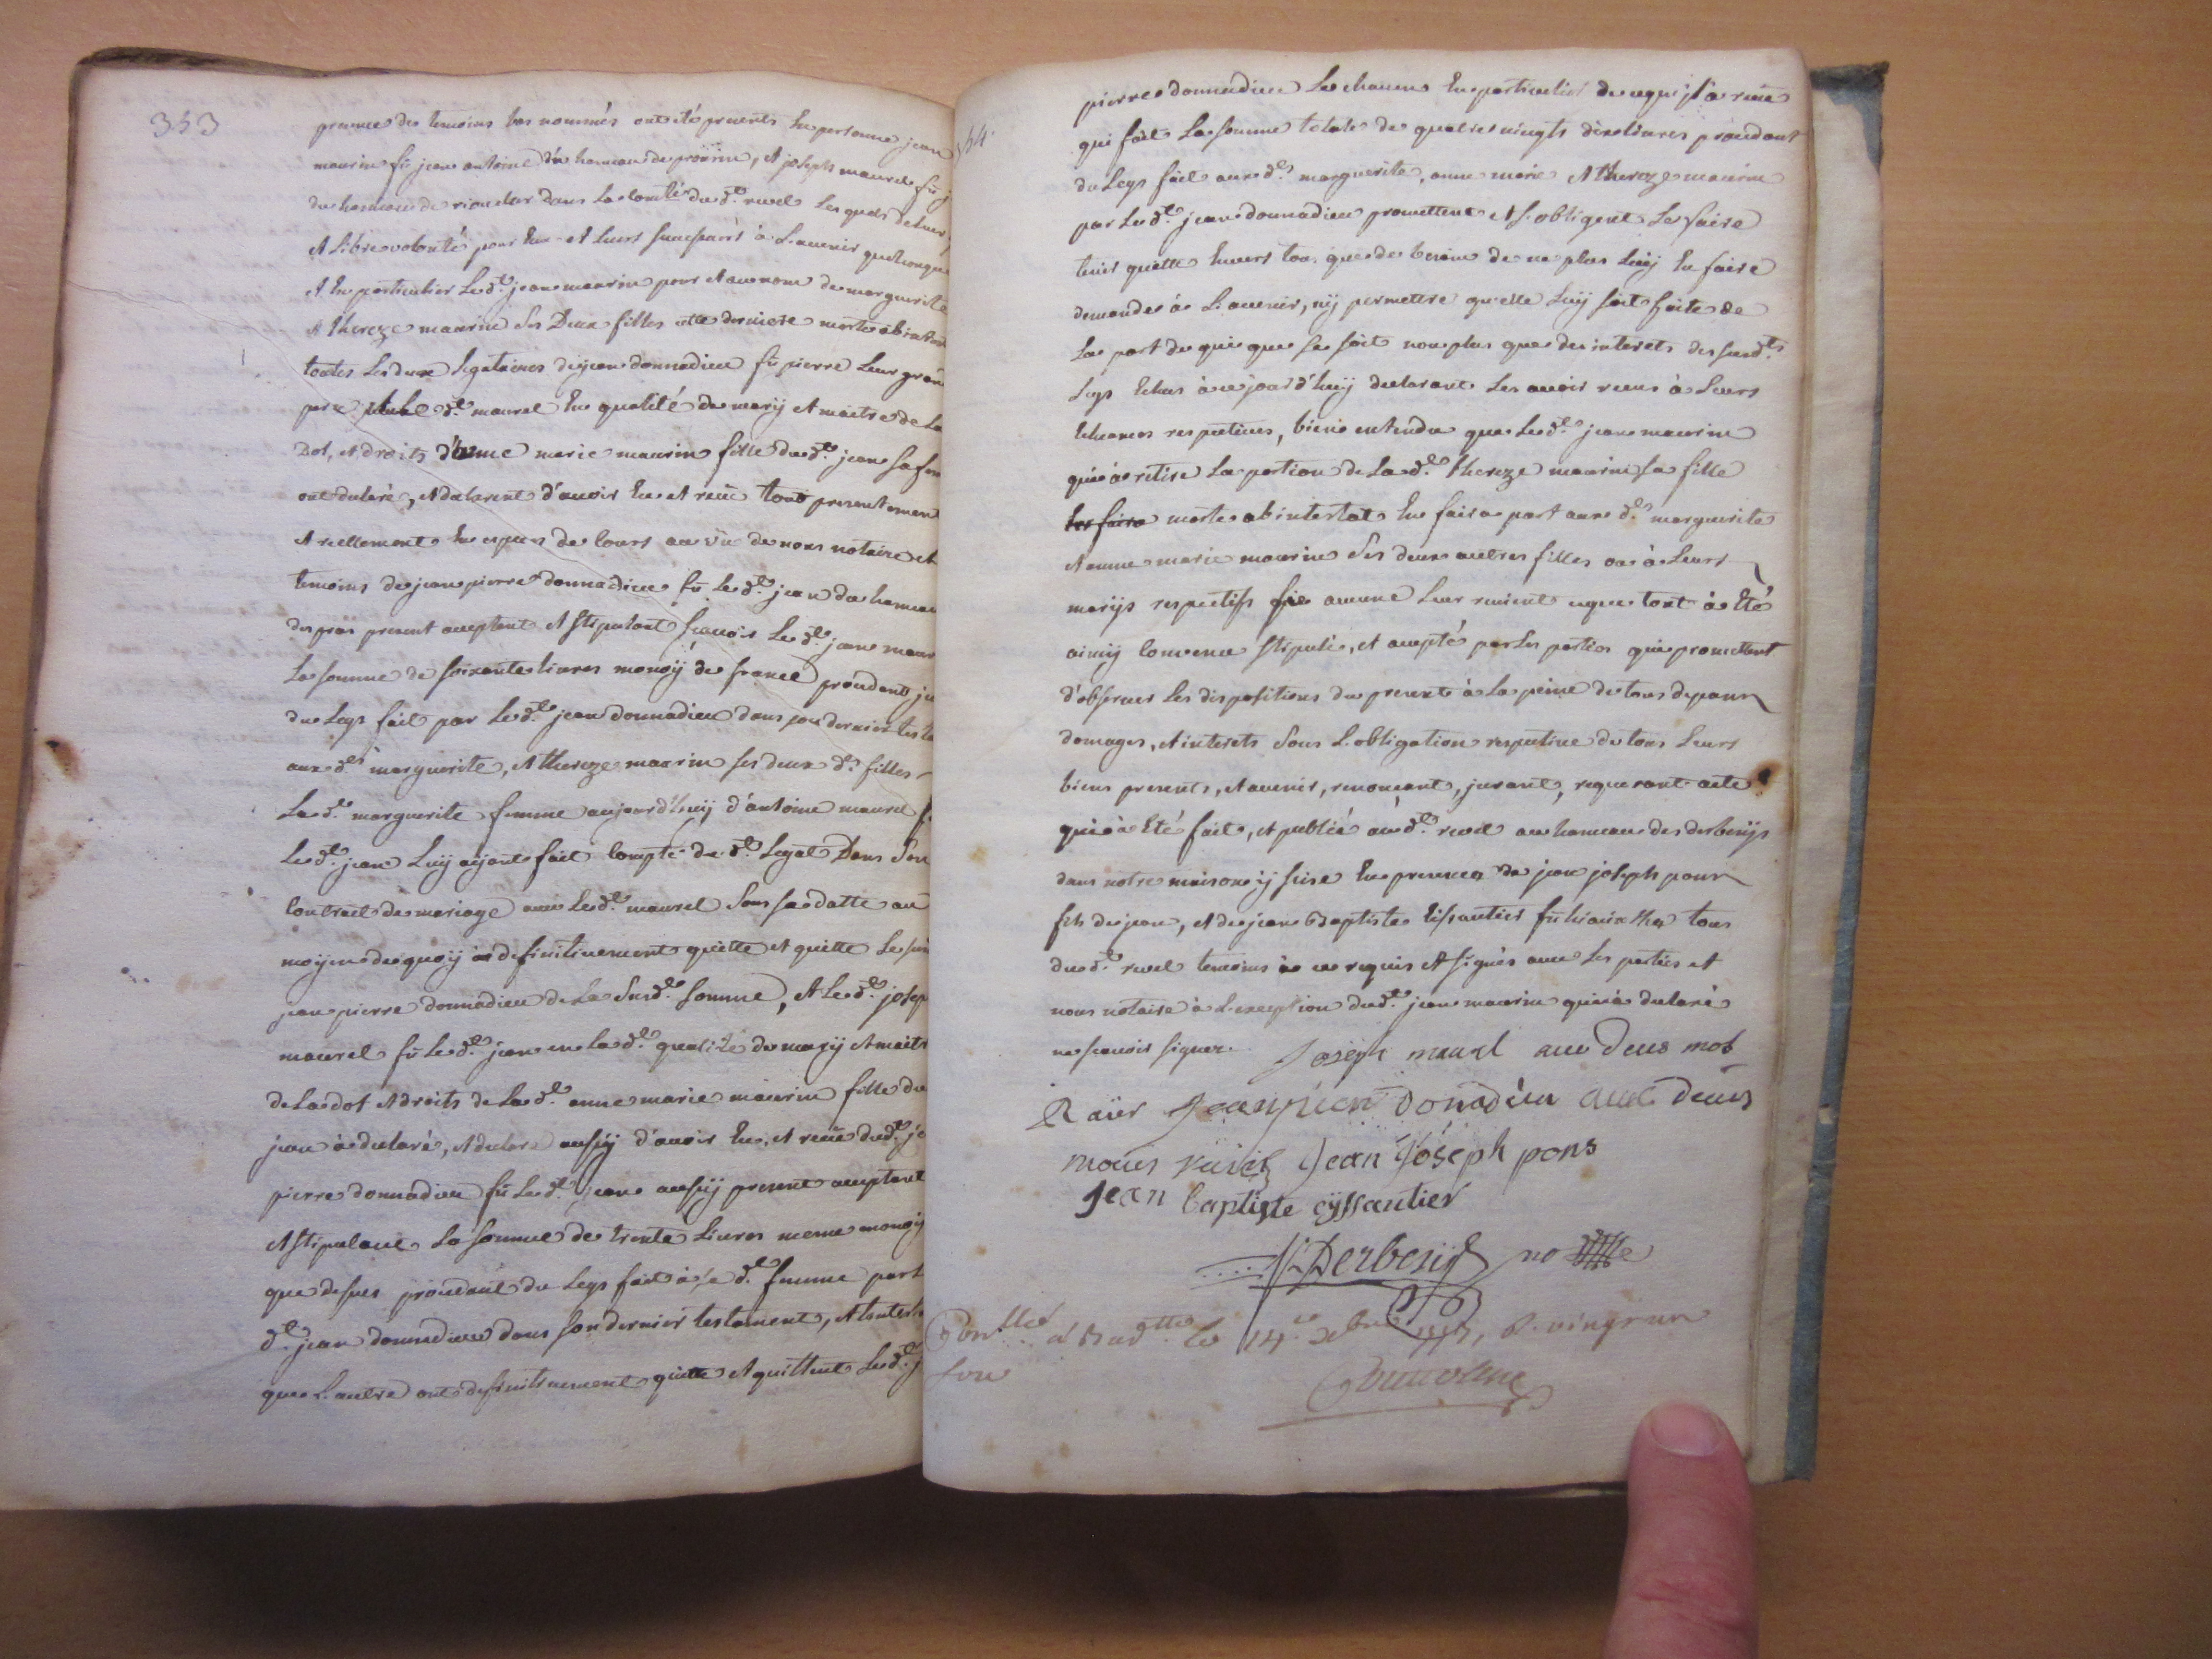 353
presence des temoins bas nommés ont eté presents En personne jean
maurin fû jean antoine du hameau de prouvin, et joseph maurel fû j
du hameau de rionclar dans la comté du d.t revel Les quels de Leur
et Libre volonté pour Eux et Leurs successeurs à L'avenir quelconque
et En particulier Led.t jean maurin pour et au nom de marguerite
et thereze maurin ses Deux filles cette derniere morte ab intestat
toutes Les deux Legataires de jean donnadieu fû pierre Leur grand
pere et Le d.t maurel En qualité de mary et maitre de La
Dot, et droits d'anne marie maurin fille dud.t jean sa fem
ont declaré, et declarent d'avoir Eu et receu tout presentement
et reellement En especes de cours au vû de nous notaire et
temoins de jean pierre donnadieu fû Led.t jean du hameau
des pras present acceptant et stipulant sçavoir Le d.t jean maur
La somme de soixante livres monoÿ de france procedant
du Legs fait par Led.t jean donnadieu dans son dernier testa
aux d.es marguerite, et thereze maurin ses deux d.es filles
La d.e marguerite femme aujourd'huÿ d'antoine maurel f
Le d.t jean Luÿ aÿant fait compte du d.t Legat Dans Son
contract de mariage avec Le d.t maurel Sous sa datte au
moÿen de quoÿ a definitivement quitté et quitte Le
jean pierre donnadieu de La Susd.e somme, et Le d.t josep
maurel fû Le d.t jean en La d.e qualité de marÿ et maitr
de La dot et droits de La d.e anne marie maurin fille du
jean à declaré, et declare aussÿ d'avoir Eu, et receu dud.t je
pierre donnadieu fû Led.t jean aussÿ present acceptant
et stipulant La somme de trente Livres meme monoÿ
que dessus procedant du Legs fait à sa d.e femme par L
d.t jean donnadieu dans son dernier testament, et tant L
que L'autre ont definitivement quitté et quittent Led.t j
354
pierre donnadieu Le chacun En particulier de ce qu'il a receu
qui fait La somme totale de quatre vingts dix Livres procedant
du Legs fait aux d.es marguerite, anne marie et thereze maurin
par Led.t jean donnadieu promettent et s'obligent Le faire
tenir quitte Envers tous que de besoin de ne plus Luÿ En faire
demande à L'avenir, nÿ permettre qu'elle Luÿ soit faite de
La part de qui que se soit non plus que des interets des susd.ts
Legs Echus à ce jourd'huÿ declarant Les avoir receus à Leurs
Echeances respectives, bien entendu que Le d.t jean maurin
qui a retiré La portion de La d.e thereze maurin sa fille
morte ab intestat En faira part aux d.es marguerite
et anne marie maurin Ses deux autres filles ou à Leurs
marÿs respectifs sie aucune Leur revient ce que tout à Eté
ainsÿ convenu stipulé, et accepté par Les parties qui promettent
d'observer Les dispositions du present à La peine de tous depans
domages, et interets Sous L'obligation respective de tous Leurs
biens presents, et avenir, renonçant, jurant, requerant acte
qui à Eté fait, et publié au d.t revel au hameau des derbesÿs
dans notre maison ÿ sise En presence de jean joseph pons
fils de jean, et de jean Baptiste Eissautier fû tous
du d.t revel temoins à ce requis et signés avec Les parties et
nous notaire à L'exception du d.t jean maurin qui à declaré
ne sçavoir signer. Joseph maurel ave deus mot
Raïer Jean pierr Donadieu avec deus
moües jean Joseph pons
jean baptiste eyssautier
Derbesÿs no.re
à le 14.e